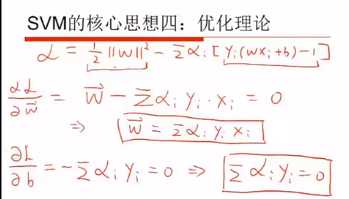 SVM的核心思想四：优化理论
L = 1/2 ||w||² - Σαᵢ[yᵢ(wxᵢ+b)-1]
∂L/∂w⃗ = w⃗ - Σαᵢyᵢ·xᵢ = 0
⇒ w⃗ = Σαᵢyᵢxᵢ
∂L/∂b = -Σαᵢyᵢ = 0 ⇒ Σαᵢyᵢ = 0